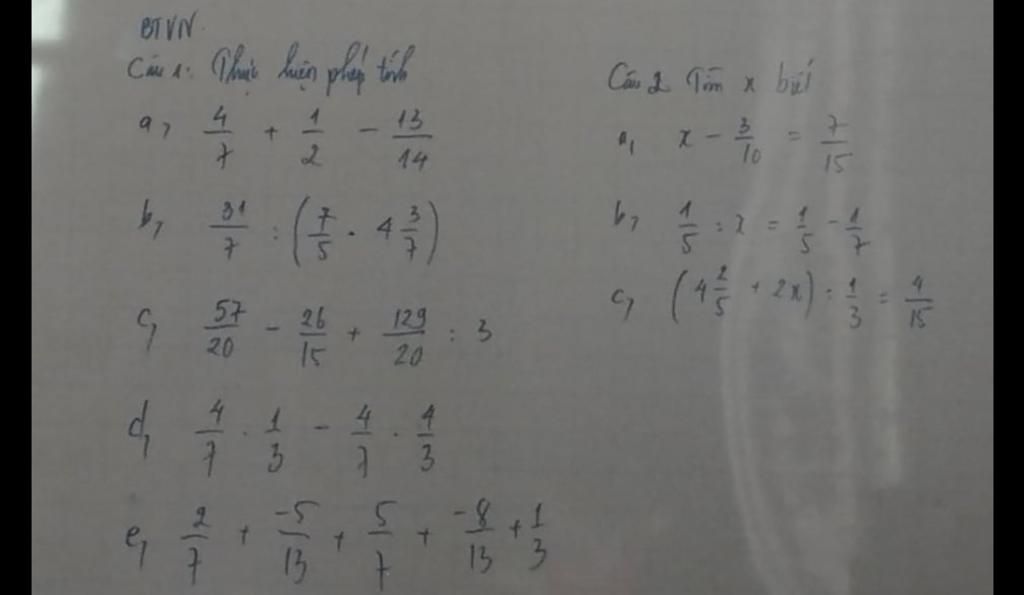 BTVN.
Câu 1: Thực hiện phép tính
a, 4/7 + 1/2 - 13/14
b, 31/7 : (7/5 . 4 3/7)
c, 57/20 - 26/15 + 129/20 : 3
d, 4/7 . 1/3 - 4/7 . 4/3
e, 2/7 + -5/13 + 5/7 + -8/13 + 1/3
Câu 2 Tìm x biết
a, x - 3/10 = 7/15
b, 1/5 : x = 1/5 - 1/7
c, (4 2/5 + 2x) : 1/3 = 4/15